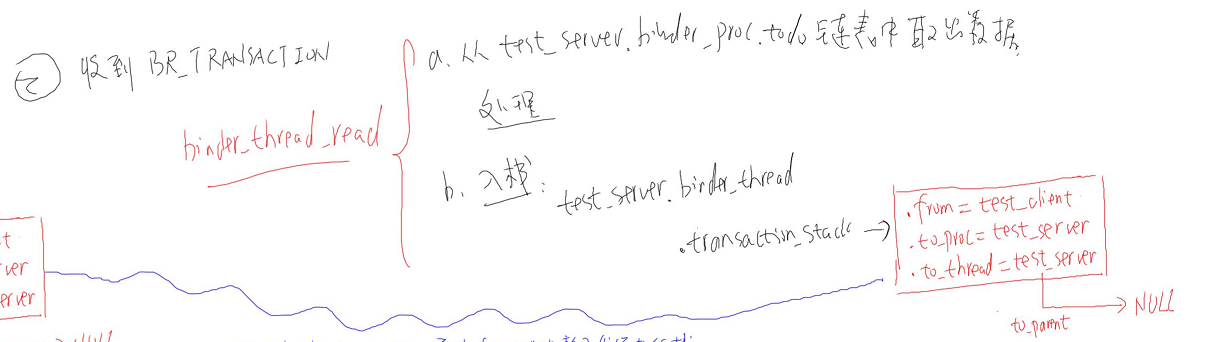 ② 收到 BR_TRANSACTION
binder_thread_read
a. 从 test_server.binder_proc.todo 链表中取出数据,
处理
b. 入栈:
test_server.binder_thread
.transaction_stack →
.from = test_client
.to_proc = test_server
.to_thread = test_server
to_parent
NULL
NULL